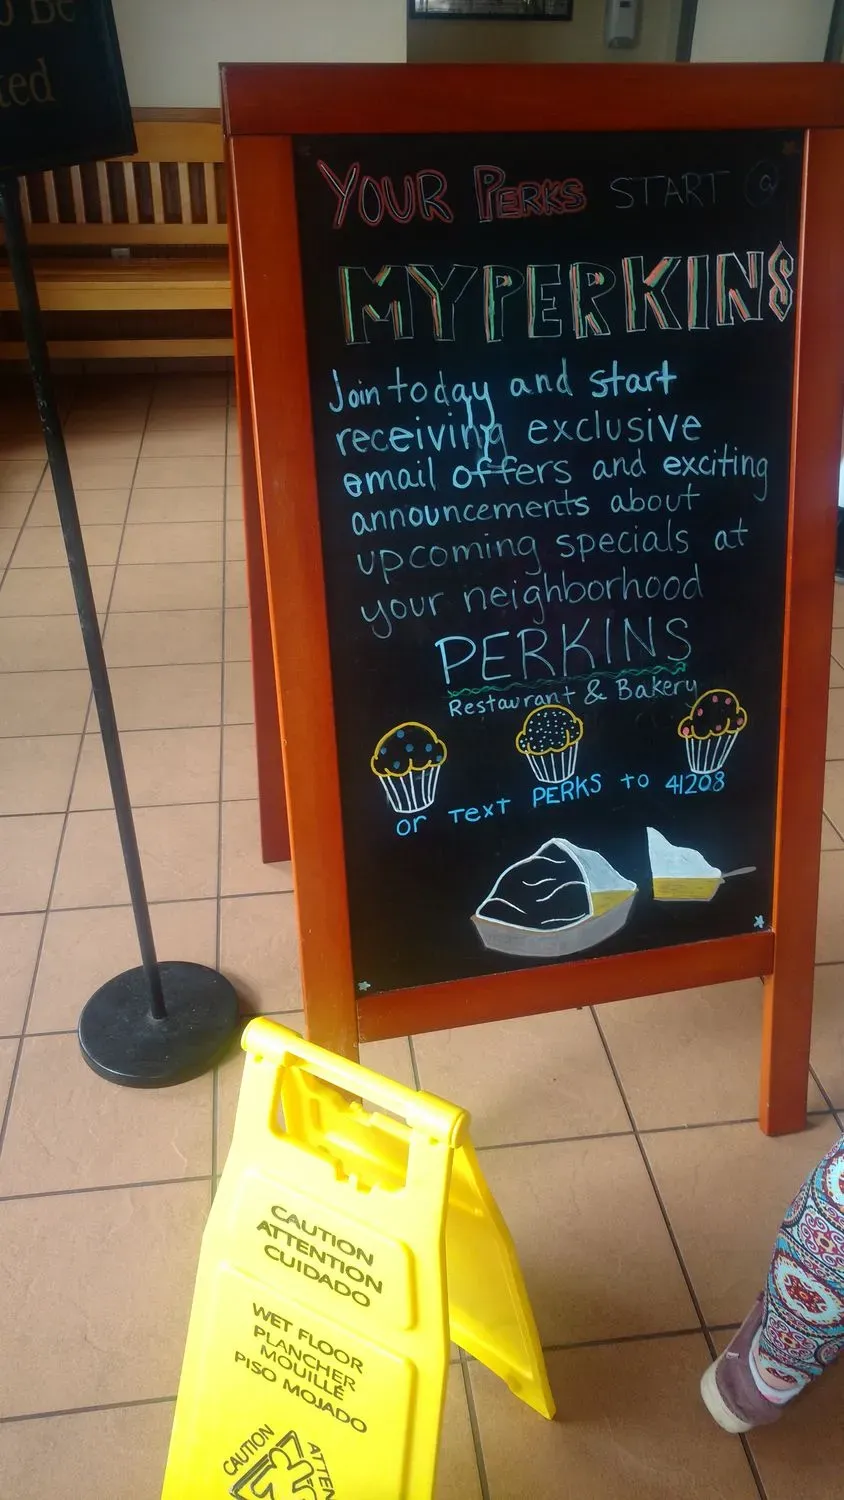 o Be
ted
YOUR PERKS START @
MYPERKINS
Join today and start
receiving exclusive
email offers and exciting
announcements about
upcoming specials at
your neighborhood
PERKINS
Restaurant & Bakery
or TEXT PERKS to 41208
CAUTION
ATTENTION
CUIDADO
WET FLOOR
PLANCHER
MOUILLÉ
PISO MOJADO
CAUTION
ATTEN